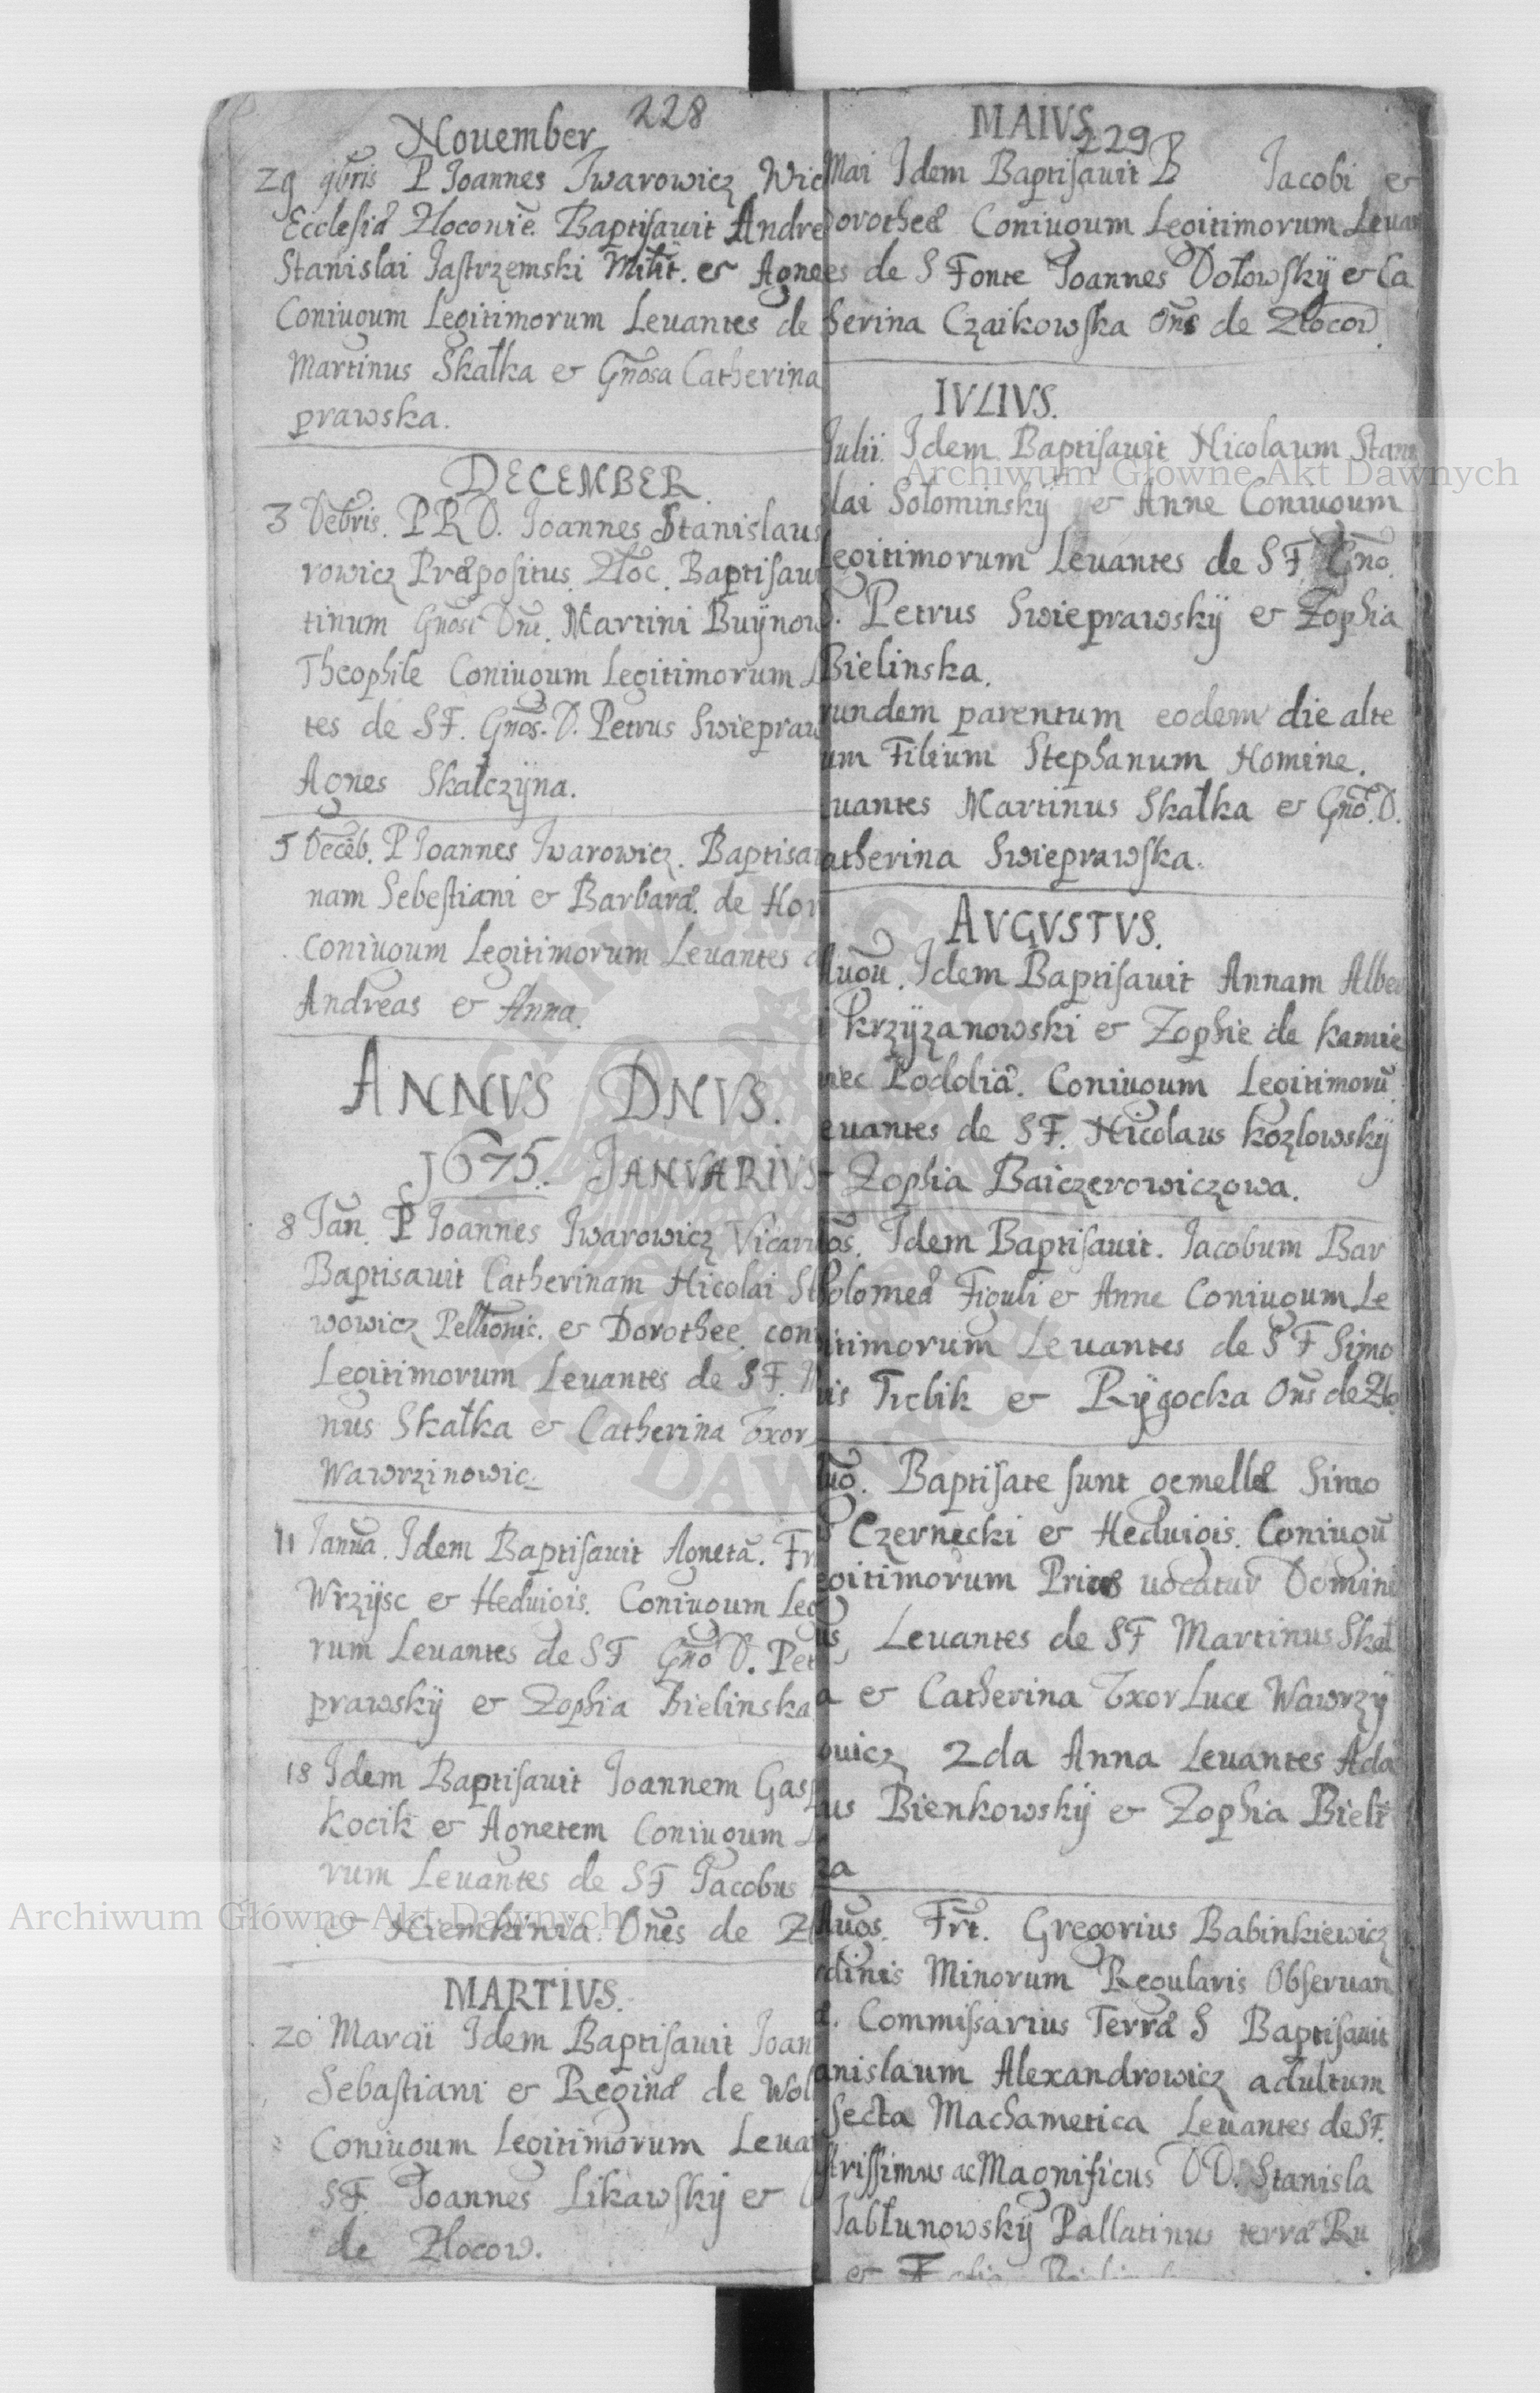 228
November
29 9bris P Joannes Iwarowicz Wic
Ecclesiæ Zloconie. Baptisauit Andre
Stanislai Jastrzemski Milit. et Agne
Coniugum Legitimorum Leuantes de
Martinus Skałka et Gnosa Catherina
prawska.
DECEMBER.
3 Debris. P R D. Joannes Stanislaus
rowicz Præpositus Złoc. Baptisau
tinum Gnosi Dni. Martini Buÿnow
Theophile Coniugum Legitimorum L
tes de S F. Gnos. D. Petrus Swiepraw
Agnes Skałczÿna.
5 Deceb. P Joannes Iwarowicz. Baptisa
nam Sebestiani et Barbaræ. de Hor
Coniugum Legitimorum Leuantes d
Andreas et Anna.
ANNVS DNVS.
1675. JANVARIVS
8 Jan. P Joannes Iwarowicz Vicari
Baptisauit Catherinam Nicolai St
wowicz Pellionis. et Dorothee coni
Legitimorum Leuantes de S F. M
nus Skałka et Catherina Vxor
Wawrzinowic.
11 Janua. Idem Baptisauit Agnetā. Fr
Wrzÿsc et Heduigis. Coniugum Leg
rum Leuantes de S F Gno D. Pet
prawskÿ et Zophia Bielinska
18 Idem Baptisauit Joannem Gasp
Kocik et Agnetem Coniugum L
rum Leuantes de S F Jacobus
et Niemkinia. Ones de Zł
MARTIVS.
20 Marcii Idem Baptisauit Joan
Sebastiani et Reginæ de Wol
Coniugum Legitimorum Leua
S F. Joannes Likawskÿ et
de Zlocow.
MAIVS
229
Mai Idem Baptisauit B Jacobi et
Dorotheæ Coniugum Legitimorum Leuan
es de S Fonte Joannes Dołowskÿ et Ca
herina Czaikowska Ons de Złocow.
IVLIVS.
Julii. Idem Baptisauit Nicolaum Stani
slai Sołominskÿ et Anne Coniugum
Legitimorum Leuantes de S F. Gno.
D. Petrus Swieprawskÿ et Zophia
Bielinska.
rundem parentum eodem die alte
um Filium Stephanum Nomine.
uantes Martinus Skałka et Gno. D.
atherina Swieprawska.
AVGVSTVS.
Augu. Idem Baptisauit Annam Alber
i Krzÿzanowski et Zophie de Kamie
niec Podoliæ. Coniugum Legitimorū.
euantes de S F. Nicolaus Kozlowskÿ
et Zophia Baiczerowiczowa.
os. Idem Baptisauit. Jacobum Bar
tholomeæ Figuli et Anne Coniugum Le
itimorum Leuantes de S F Simo
nis Trebik et Rÿgocka Ons de Zło
Aug. Baptisate sunt gemellæ Simo
Czernecki et Heduigis. Coniugū
egitimorum Prior uocatur Domini
us, Leuantes de S F Martinus Skał
a et Catherina Vxor Luce Wawrzÿ
owicz 2da Anna Leuantes Ada
us Bienkowskÿ et Zophia Bieli
ka
Augos. Frt. Gregorius Babinkiewicz
rdinis Minorum Regularis Obseruan
æ. Commissarius Terræ S Baptisauit
anislaum Alexandrowicz adultum
secta Machametica Leuantes de S F.
strissimus ac Magnificus D D. Stanisla
Jabłunowskÿ Pallatinus terræ Ru
Archiwum Główne Akt Dawnych
Archiwum Główne Akt Dawnych